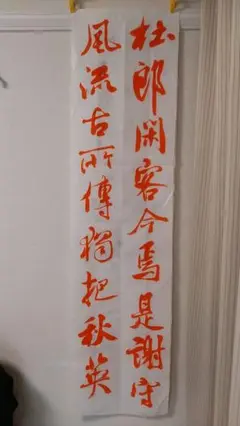 杜郎閑客今焉是謝守
風流古所傳獨把秋英